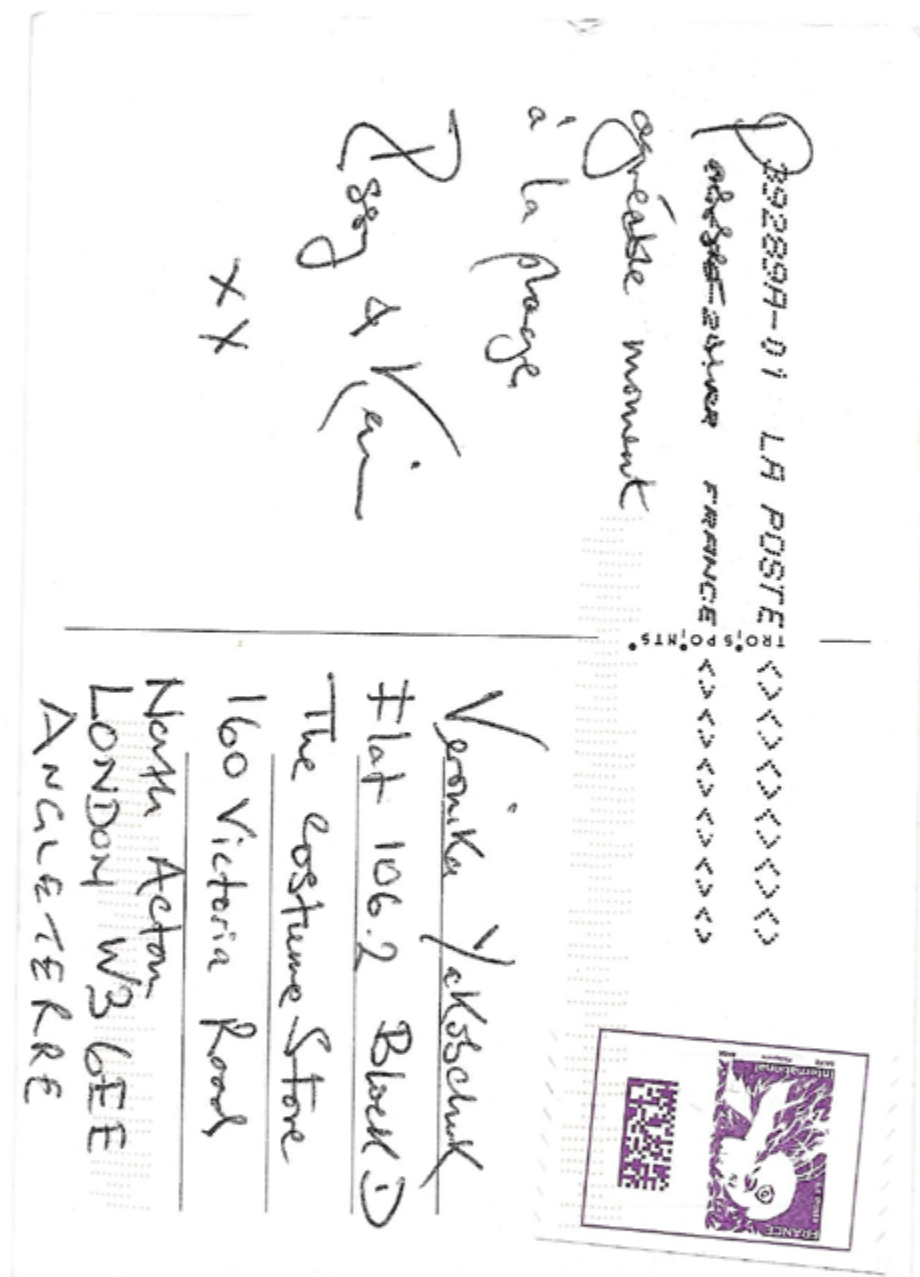 B9289A-01 LA POSTE
FRANCE
agréable moment
à la plage
Peggy & Kevin
XX
TROIS POINTS
Veronika Yakobchuk
Flat 106.2 Block D
The Costume Store
160 Victoria Road
North Acton
LONDON W3 6EE
ANGLETERRE
International
LA POSTE
FRANCE